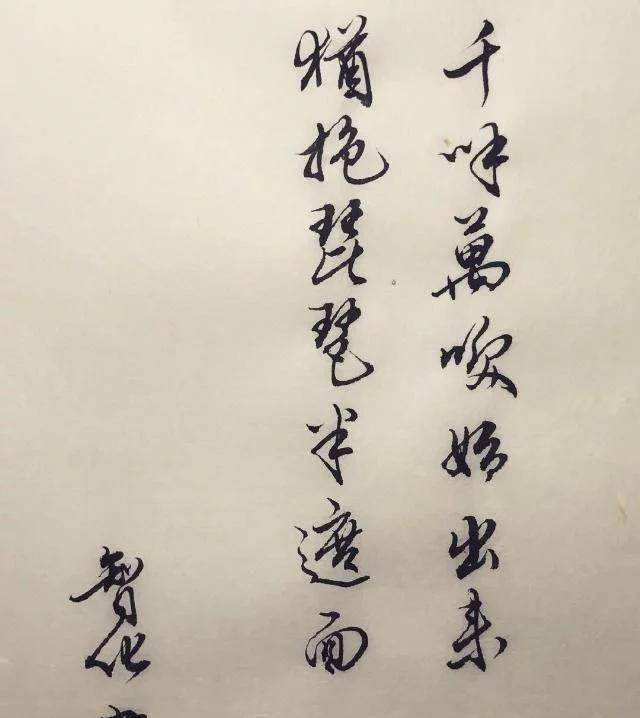 千呼萬喚始出来
猶抱琵琶半遮面
智化